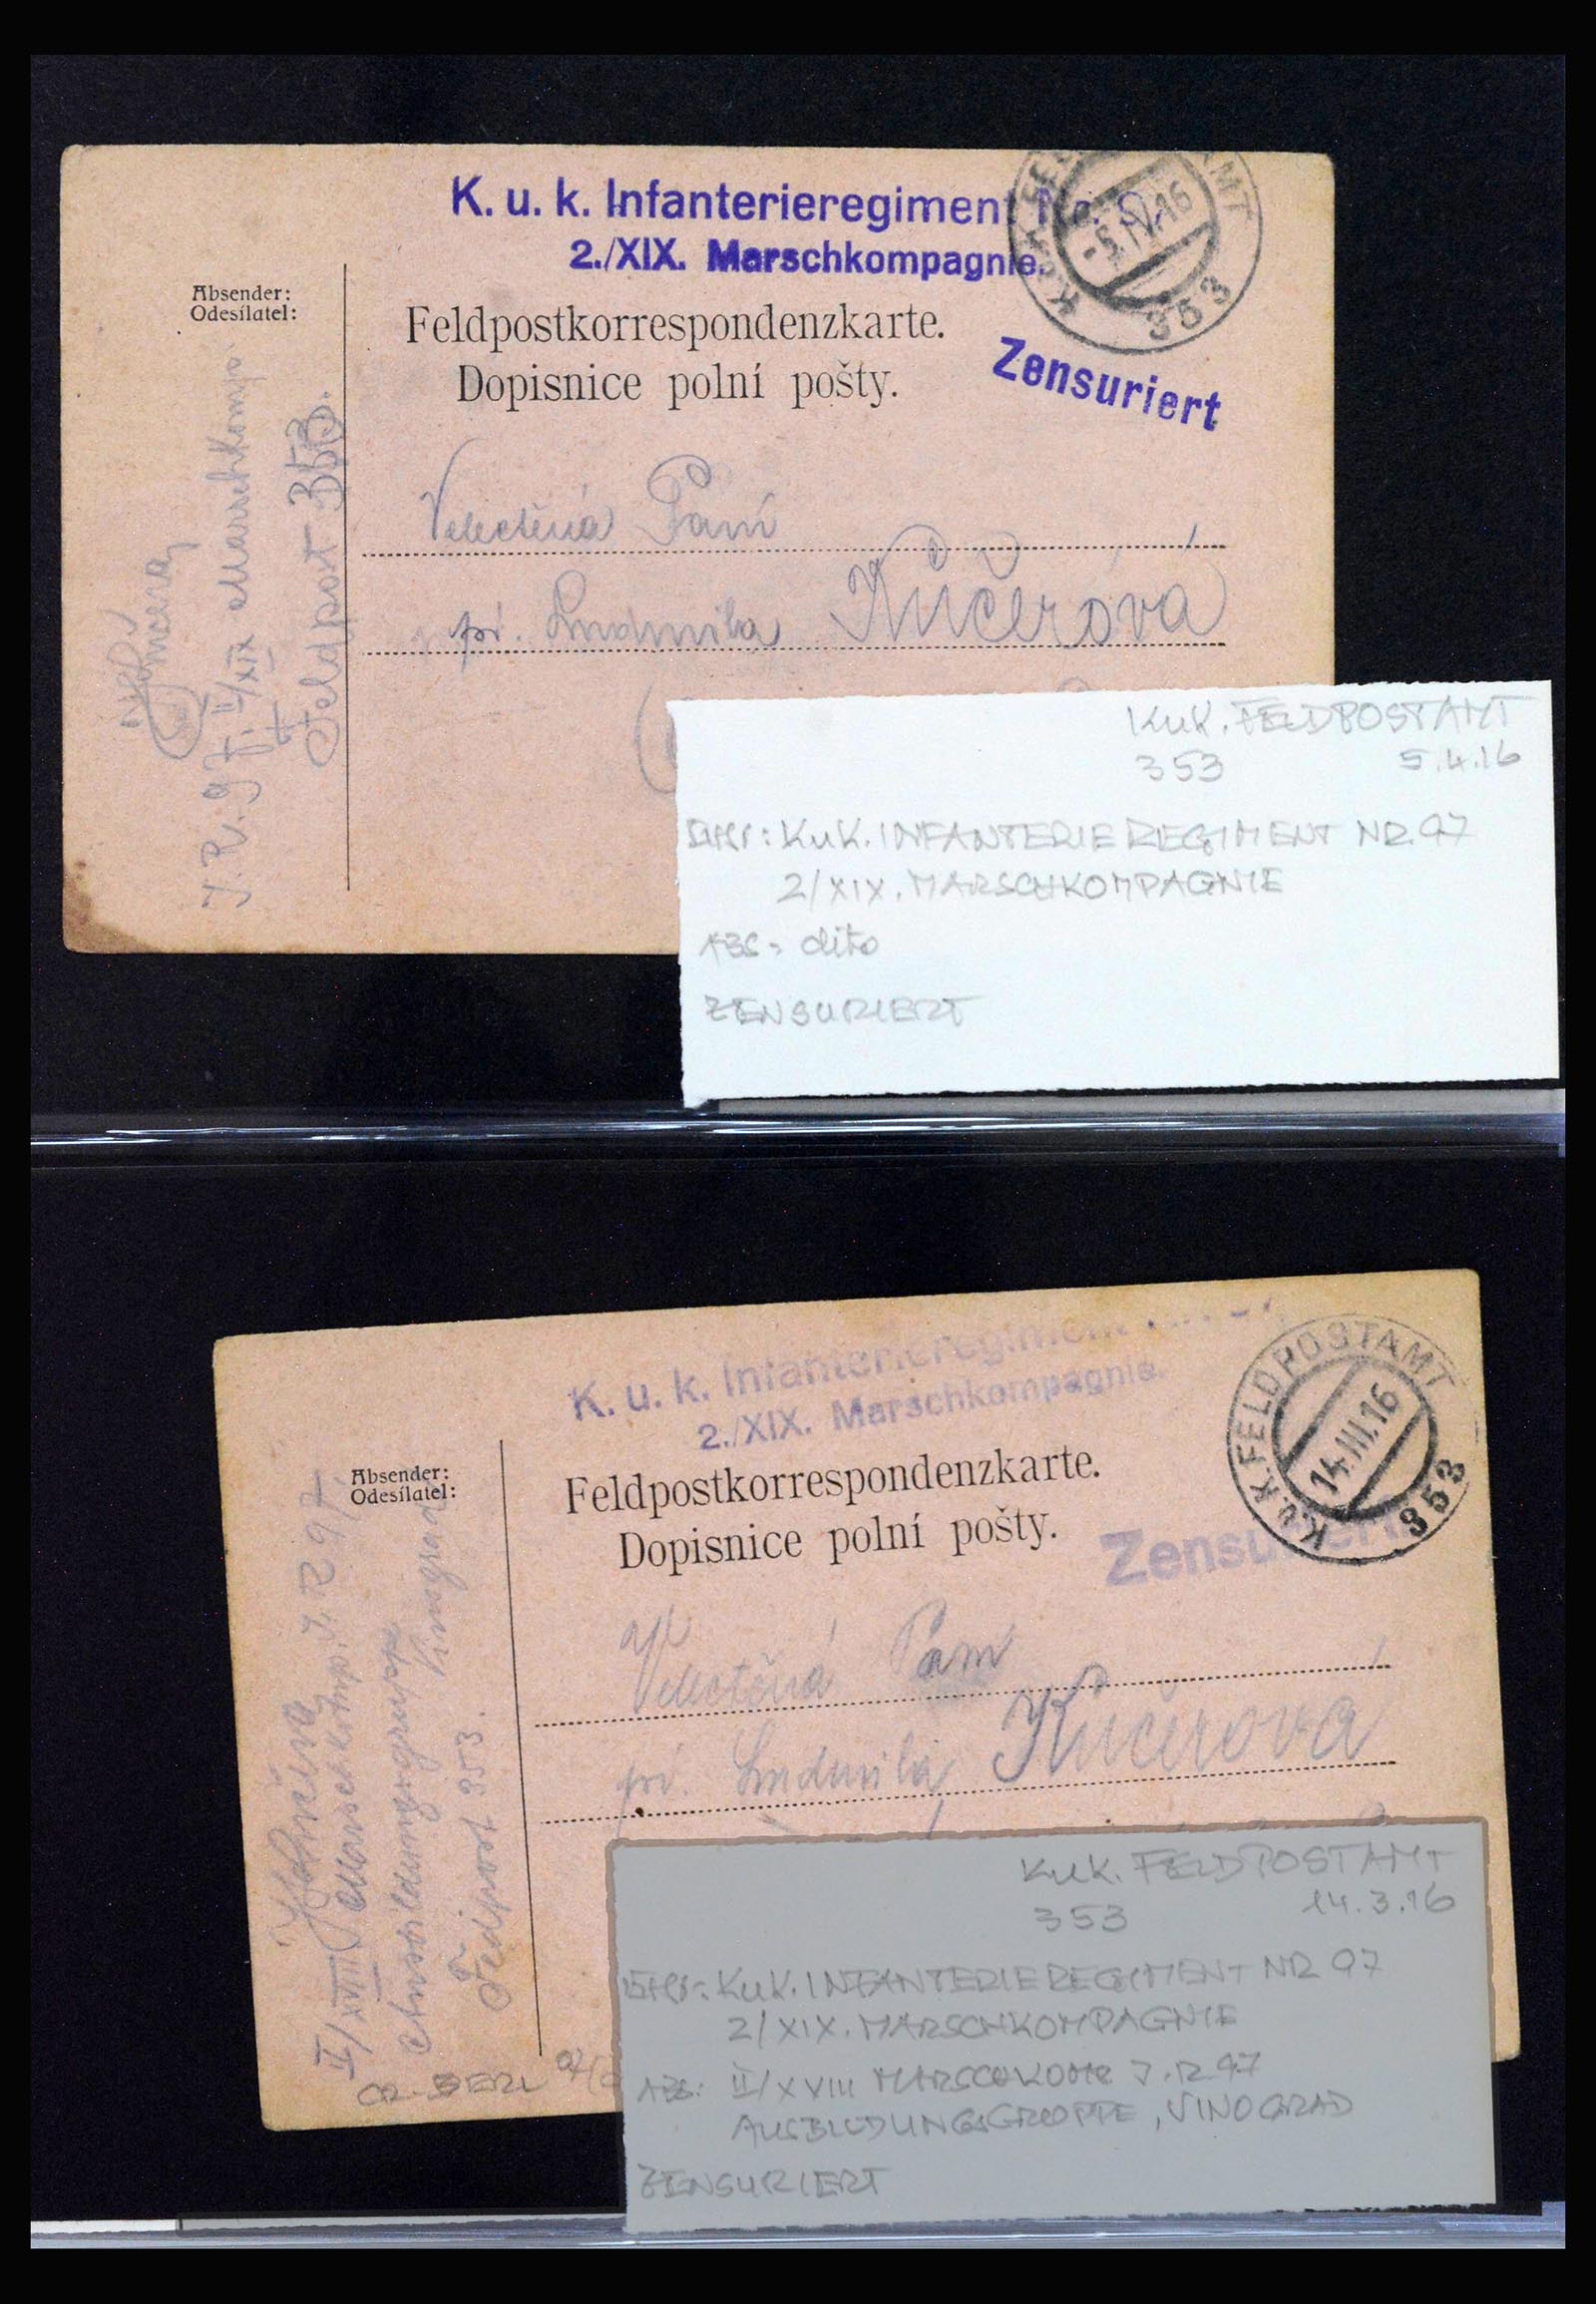 K. u. k. Infanterieregiment No. 9
2./XIX. Marschkompagnie.
K.u.K. FELDPOSTAMT
-5.IV.16
353
Absender:
Odesílatel:
Feldpostkorrespondenzkarte.
Dopisnice polní pošty.
Zensuriert
Velectěná Paní
pí. Ludmila Kučerová
J. R. 97. II/XIX Marschkomp.
Feldpost 353.
KuK. FELDPOSTAMT
353 5.4.16
KuK. INFANTERIEREGIMENT NR. 97
2/XIX. MARSCHKOMPAGNIE
ABS: dito
ZENSURIERT
K. u. k. Infanterieregiment
2./XIX. Marschkompagnie.
K.u.K. FELDPOSTAMT
14.III.16
353
Absender:
Odesílatel:
Feldpostkorrespondenzkarte.
Dopisnice polní pošty.
Zensuriert
Velectěná Paní
pí. Ludmila Kučerová
II/XVIII Marschkomp. J. R 97
Ausbildungsgruppe Vinograd
Feldpost 353.
KuK. FELDPOSTAMT
353 14.3.16
KuK. INFANTERIEREGIMENT NR 97
2/XIX. MARSCHKOMPAGNIE
ABS: II/XVIII MARSCHKOMP J.R 97
AUSBILDUNGSGRUPPE, VINOGRAD
ZENSURIERT